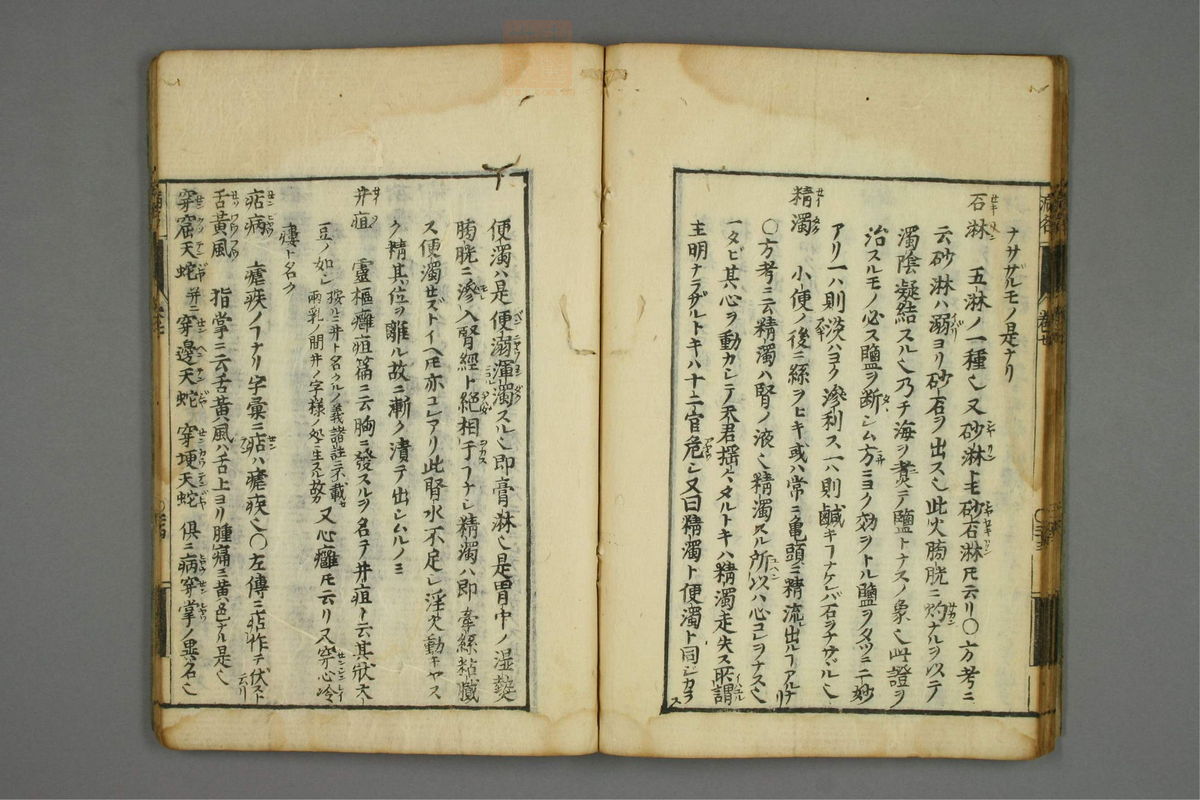 ナサザルモノ是ナリ
石淋 五淋ノ一種也又砂淋トモ砂石淋トモ云リ〇方考ニ
云砂淋ハ溺ヨリ砂石ヲ出ス也此火膀胱ニ灼ナルヲ以テ
濁陰凝結スル也乃チ海ヲ煑テ鹽トナスノ象也此證ヲ
治スルモノ必ス鹽ヲ断シム方ニヨク効ヲトル鹽ヲタツニ二妙
アリ一ハ則淡ハヨク滲利ス一ハ則鹹キヿナケレバ石ヲナサヾル也
精濁 小便ノ後ニ絲ヲヒキ或ハ常ニ亀頭ニ精流出ルヿアルナリ
〇方考ニ云精濁ハ腎ノ液也精濁スル所以ハ心コレヲナス也
一タビ其心ヲ動カシテ天君揺タルトキハ精濁走失ス所謂
主明ナラザルトキハ十二官危シ又曰精濁ト便濁ト同シカラス
便濁ハ是便溺渾濁スル也即膏淋也是胃中ノ湿熱
膀胱ニ滲入腎經ト絕相于ヿナシ精濁ハ即牽絲粘膩
ス便濁セズトイヘモ亦コレアリ此腎水不足シ淫火動キヤス
ク精其位ヲ離ル故ニ漸ク潰テ出シムルノミ
井疽 靈樞癰疽篇ニ云胸ニ發スルヲ名テ井疽ト云其狀大
豆ノ如シ按ルニ井ト名クルノ義諸註ニ不載セ兩乳ノ間井ノ字様ノ処ニ生スル故カ又心癰トモ云リ又穿心冷
瘻ト名ク
痁病 瘧疾ノヿナリ字彙ニ痁ハ瘧疾也〇左傳ニ痁作テ伏スト云リ
舌黃風 指掌ニ云舌黃風ハ舌上ヨリ腫痛ニ黃色ナル是也
穿窟天蛇 并ニ穿邊天蛇 穿埂天蛇 俱ニ病穿掌ノ異名也